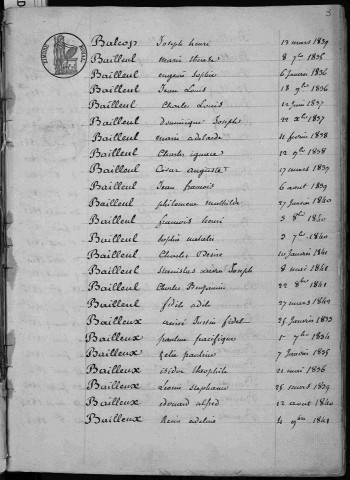 3
Balcop Joseph henri 13 mars 1839
Bailleul marie therese 8 7bre 1835
Bailleul eugenie Sophie 6 Janvier 1836
Bailleul Jean Louis 18 9bre 1836
Bailleul Charles Louis 12 Juin 1837
Bailleul Dominique Joseph 22 xbre 1837
Bailleul marie adelaide 11 fevrier 1838
Bailleul Charles ignace 12 9bre 1838
Bailleul César auguste 17 mars 1839
Bailleul Jean francois 6 aout 1839
Bailleul philomene mathilde 27 Janvier 1840
Bailleul francois henri 3 8bre 1840
Bailleul Sophie natalie 3 7bre 1840
Bailleul Charles Désiré 10 Janvier 1841
Bailleul Stanislas Joseph 8 mai 1841
Bailleul Charles Benjamin 22 8bre 1841
Bailleul fidele adele 27 mars 1842
Bailleux aimé Justin fidel 25 Janvier 1833
Bailleux pauline pacifique 1 7bre 1834
Bailleux Zelie pauline 7 Janvier 1835
Bailleux isidore theophile 21 mai 1836
Bailleux Leonie Stephanie 25 mars 1839
Bailleux edouard alfred 12 aout 1840
Bailleux adeline 4 9bre 1841